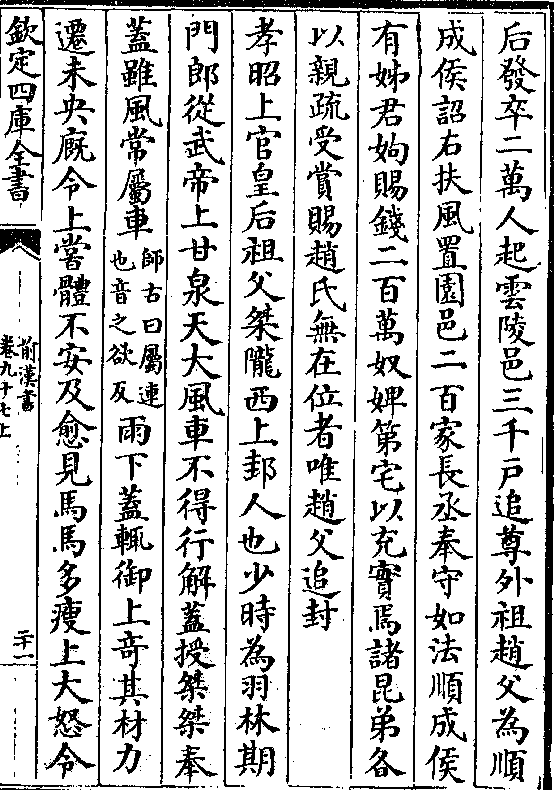 后發卒二萬人起雲陵邑三千戸追尊外祖趙父為順
成侯詔右扶風置園邑二百家長丞奉守如法順成侯
有姊君姁賜錢二百萬奴婢第宅以充實焉諸昆弟各
以親疏受賞賜趙氏無在位者唯趙父追封
孝昭上官皇后祖父桀隴西上邽人也少時為羽林期
門郎從武帝上甘泉天大風車不得行解蓋授桀桀奉
蓋雖風常屬車師古曰屬連也音之欲反雨下蓋輒御上竒其材力
遷未央廐令上嘗體不安及愈見馬馬多瘦上大怒令
欽定四庫全書
前漢書
卷九十七上
二十一